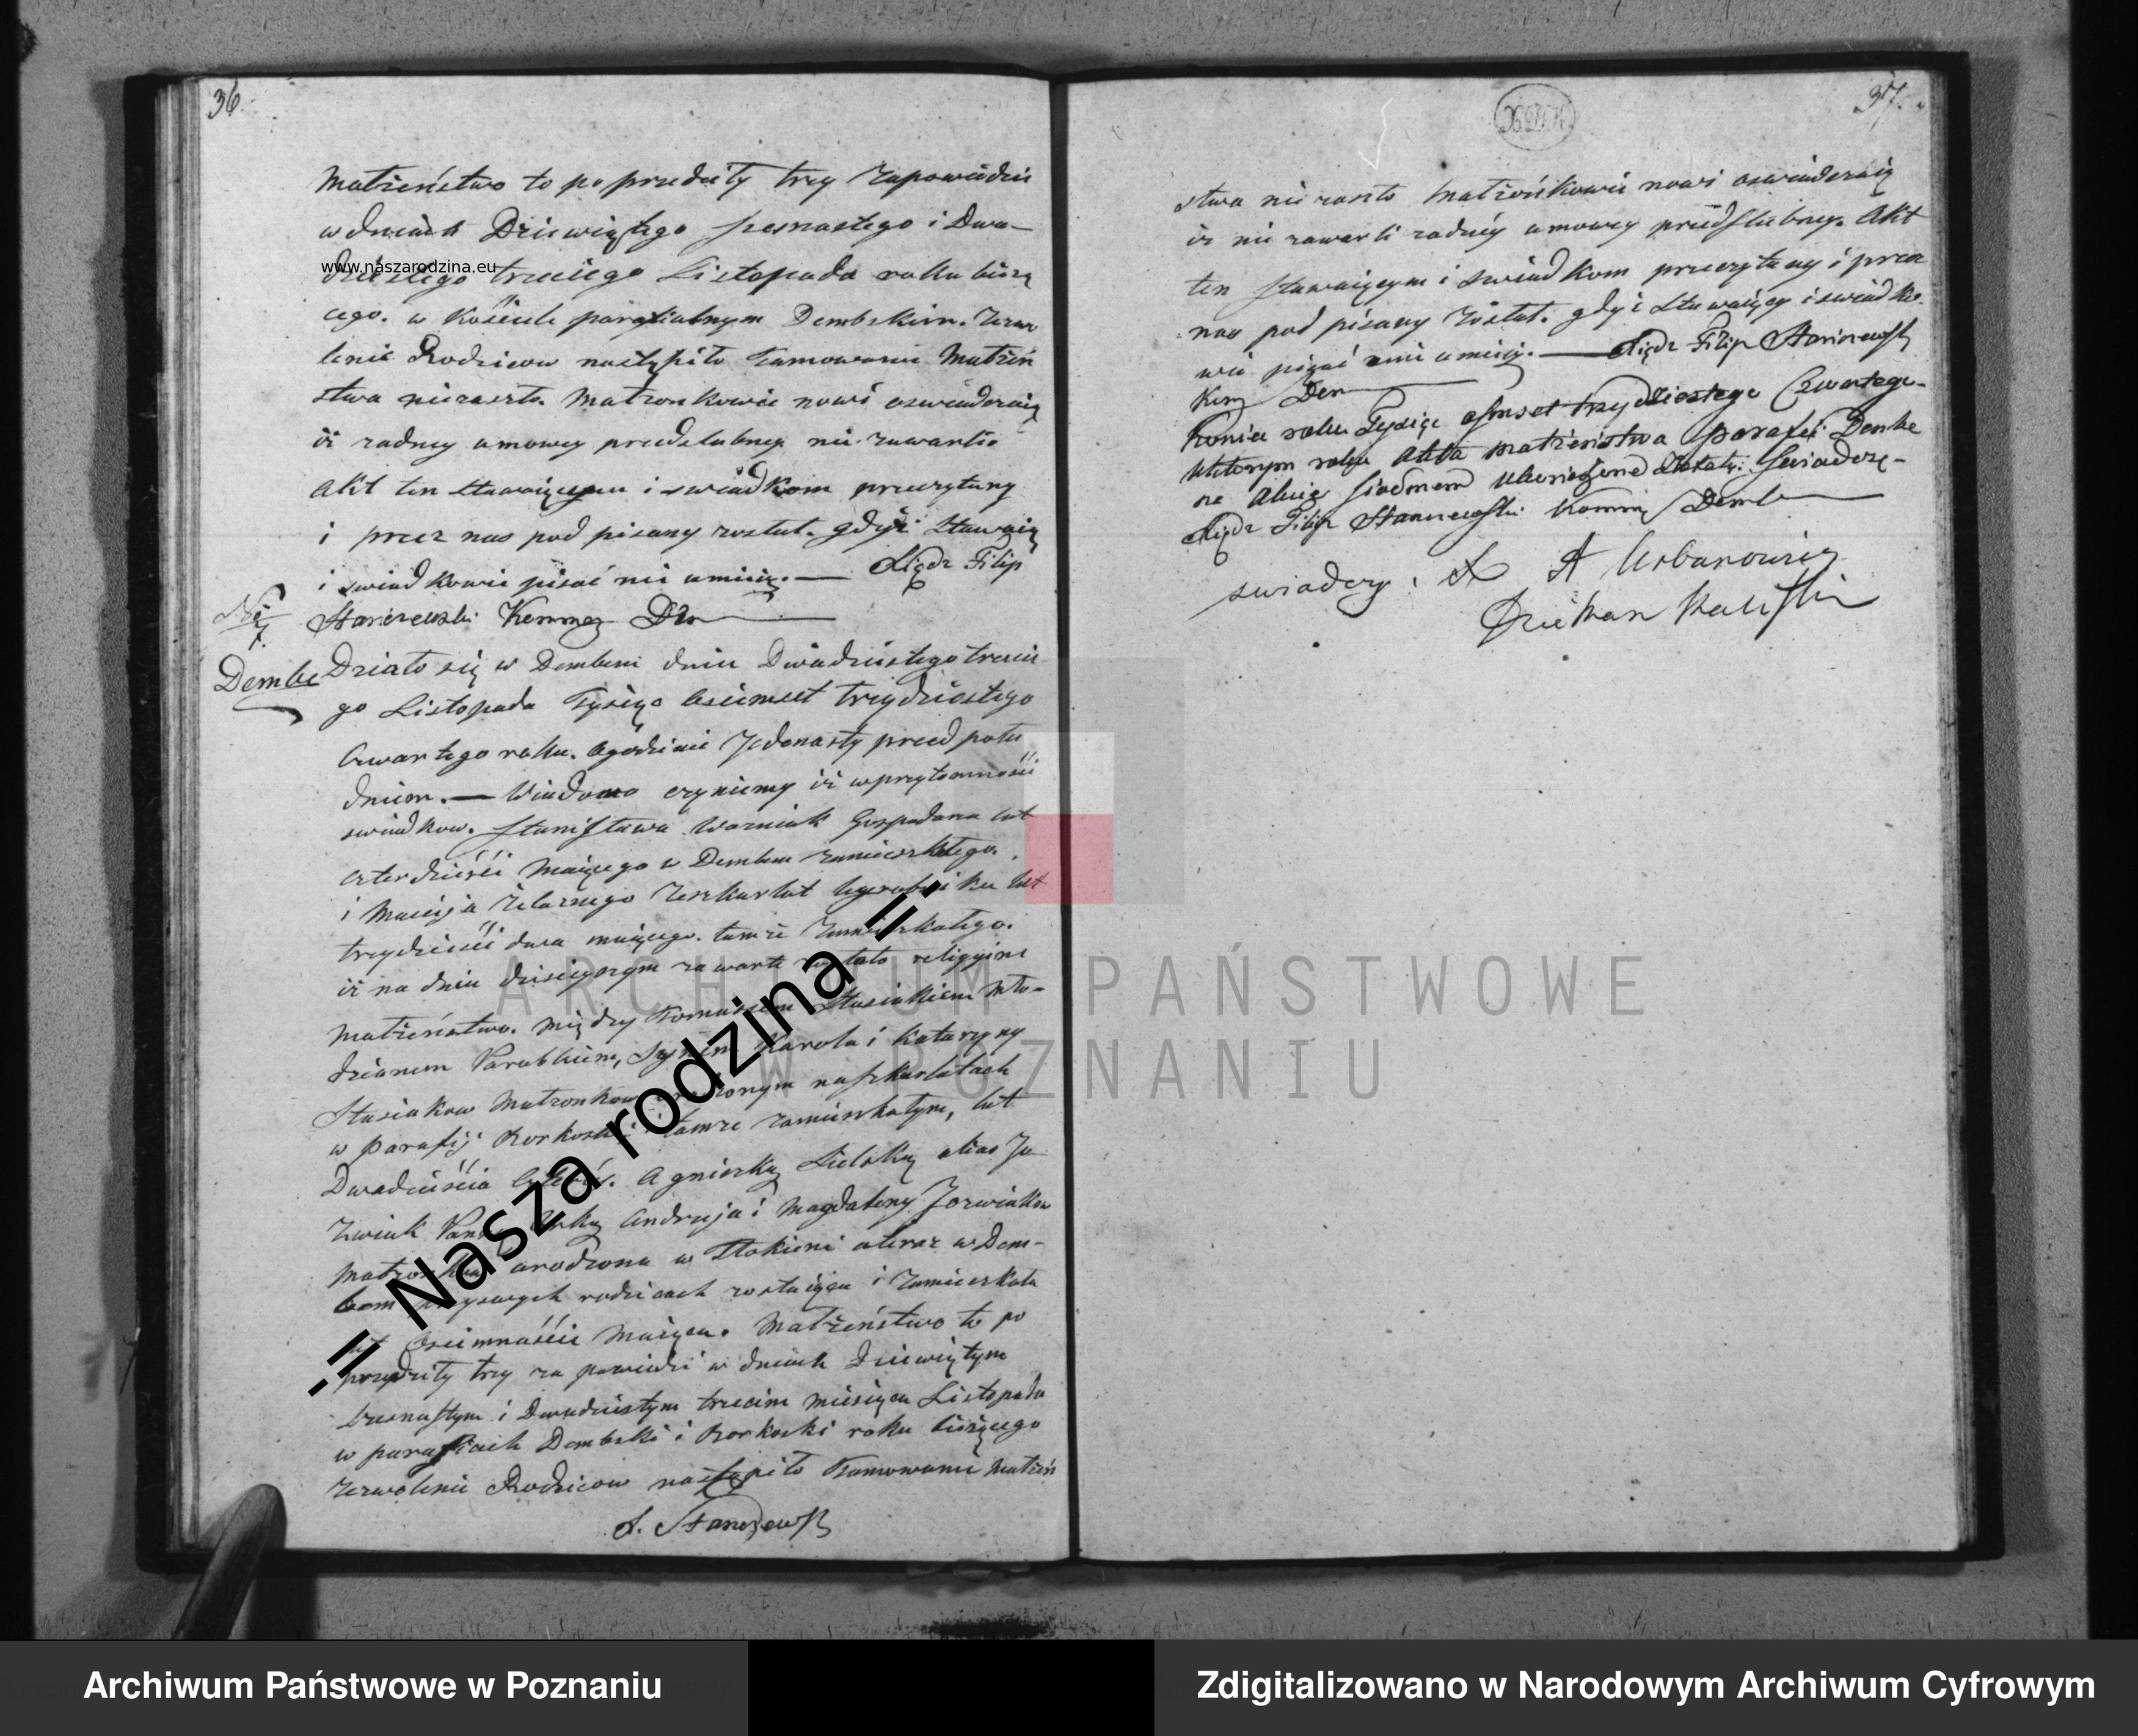 36
Małżeństwo to poprzedziły trzy zapowiedzie
w dniach Dziewiątego szesnastego i Dwu-
dziestego trzeciego Listopada roku bieżą
cego. w Kościele parafialnym Dembskim. Zezwo
lenie Rodzicow nastąpiło Tamowanie Małżeń
stwa nie zaszło. Małżonkowie nowi oswiadczaią
iż żadney umowy przedslubney nie zawarli.
Akt ten stawaiącemu i swiadkom przeczytany
i przez nas podpisany został. gdyż stawaią
i swiadkowie pisać nie umieią. — Xiądz Filip
Staniszewski Kommen Dem
No 7.
Dembe
Działo się w Dembem dniu Dwadziestego trzecie
go Listopada Tysiąc Osiemset trzydziestego
Czwartego roku. o godzinie Jedenasty przed połu
dniem. — Wiadomo czyniemy iż w przytomności
swiadkow. Stanisława Wozniak Gospodarza lat
czterdzieści Maiącego w Dembem zamieszkałego.
i Macieja Żelaznego z Szkarlat Wyrobnika lat
trzydzieści dwa maiącego. tamże zamieszkałego.
iż na dniu dzisieyszym zawarte zostało religiyine
Małżeństwo. Między Tomaszem Stasiakiem Mło-
dzianem Parobkiem, Synem Karola i Katarzyny
Stasiakow Małżonkow urodzonym na Szkarlatach
w Parafij Borkoski tamże zamieszkałym, lat
Dwadzieścia cztery. Agnieszką Sielską alias Jo
zwiak Panną Corką Andrzeja i Magdaleny Jozwiakow
Małżonkow urodzona w Tłokieni a teraz w Dem-
bem przyswych rodzicach zostaiąca i zamieszkała
lat Osiemnaście Maiąca. Małżeństwo to po
przedziły trzy zapowiedzi w dniach Dziewiątym
szesnastym i Dwudziestym trzecim miesiąca Listopada
w parafiach Dembski i Borkoski roku bieżącego
Zezwolenie Rodzicow nastąpiło Tamowanie Małżeń
37.
stwa nie zaszło Małżońkowie nowi oswiadczaią
iż nie zawarli żadnéy umowy przedslubney. Akt
ten stawaiącym i swiadkom przeczytany i przez
nas podpisany został. gdyż stawaiący i swiadko
wie pisać nie umieią. — Xiądz Filip Staniszewski
Kom Dem
Koniec roku Tysiąc osmset trzydziestego Czwartego
w którym roku Akta małżenstwa parafii Dembe
na Akcie siodmem ukończone zostały. Swiadczę-
Xiądz Filip Staniszewski Kommen Dem
swiadczy: X A Urbanowicz
Dziekan Kaliski
www.naszarodzina.eu
-= Nasza rodzina =-
ARCHIWUM PAŃSTWOWE
W POZNANIU
Archiwum Państwowe w Poznaniu
Zdigitalizowano w Narodowym Archiwum Cyfrowym